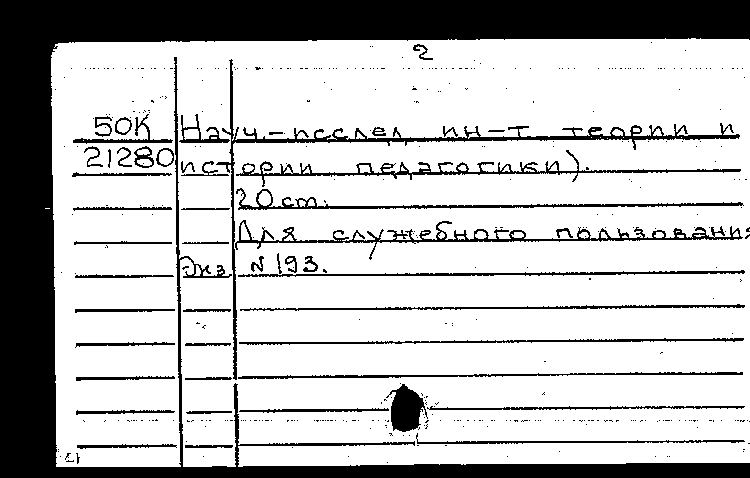 2
50К Науч.-исслед. ин-т теории и
21280 истории педагогики).
20 ст.
Для служебного пользования
Экз N 193.